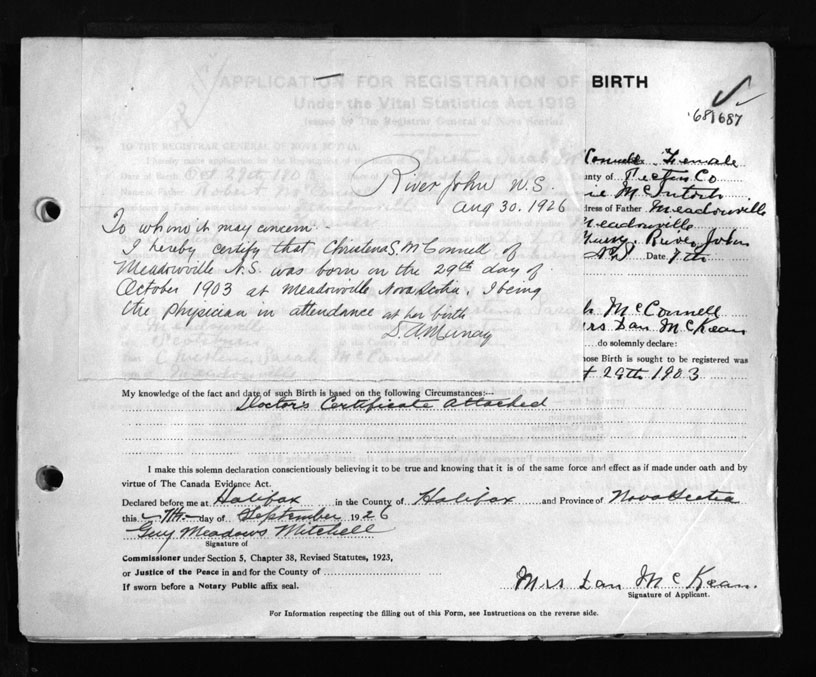 APPLICATION FOR REGISTRATION OF BIRTH
Under the Vital Statistics Act 1919
Issued by The Registrar General of Nova Scotia
681687
TO THE REGISTRAR GENERAL OF NOVA SCOTIA:
Female
River John N.S.
Aug 30. 1926
To whom it may concern
I hereby certify that Christena S. McConnell of
Meadowville N.S. was born on the 29th day of
October 1903 at Meadowville Nova Scotia, I being
the physician in attendance at her birth
S. A. Murray
unty of Pictou Co
ie McIntosh
dress of Father Meadowville
Meadowville
River John
Date 7th
McConnell
Mrs Dan McKean
do solemnly declare:
hose Birth is sought to be registered was
t 29th 1903
My knowledge of the fact and date of such Birth is based on the following Circumstances:—
Doctor's Certificate Attached
I make this solemn declaration conscientiously believing it to be true and knowing that it is of the same force and effect as if made under oath and by
virtue of The Canada Evidence Act.
Declared before me at Halifax in the County of Halifax and Province of Nova Scotia
this 7th day of September 1926
Guy Meadows Mitchell
Signature of
Commissioner under Section 5, Chapter 38, Revised Statutes, 1923,
or Justice of the Peace in and for the County of
If sworn before a Notary Public affix seal.
Mrs Dan McKean.
Signature of Applicant.
For Information respecting the filling out of this Form, see Instructions on the reverse side.